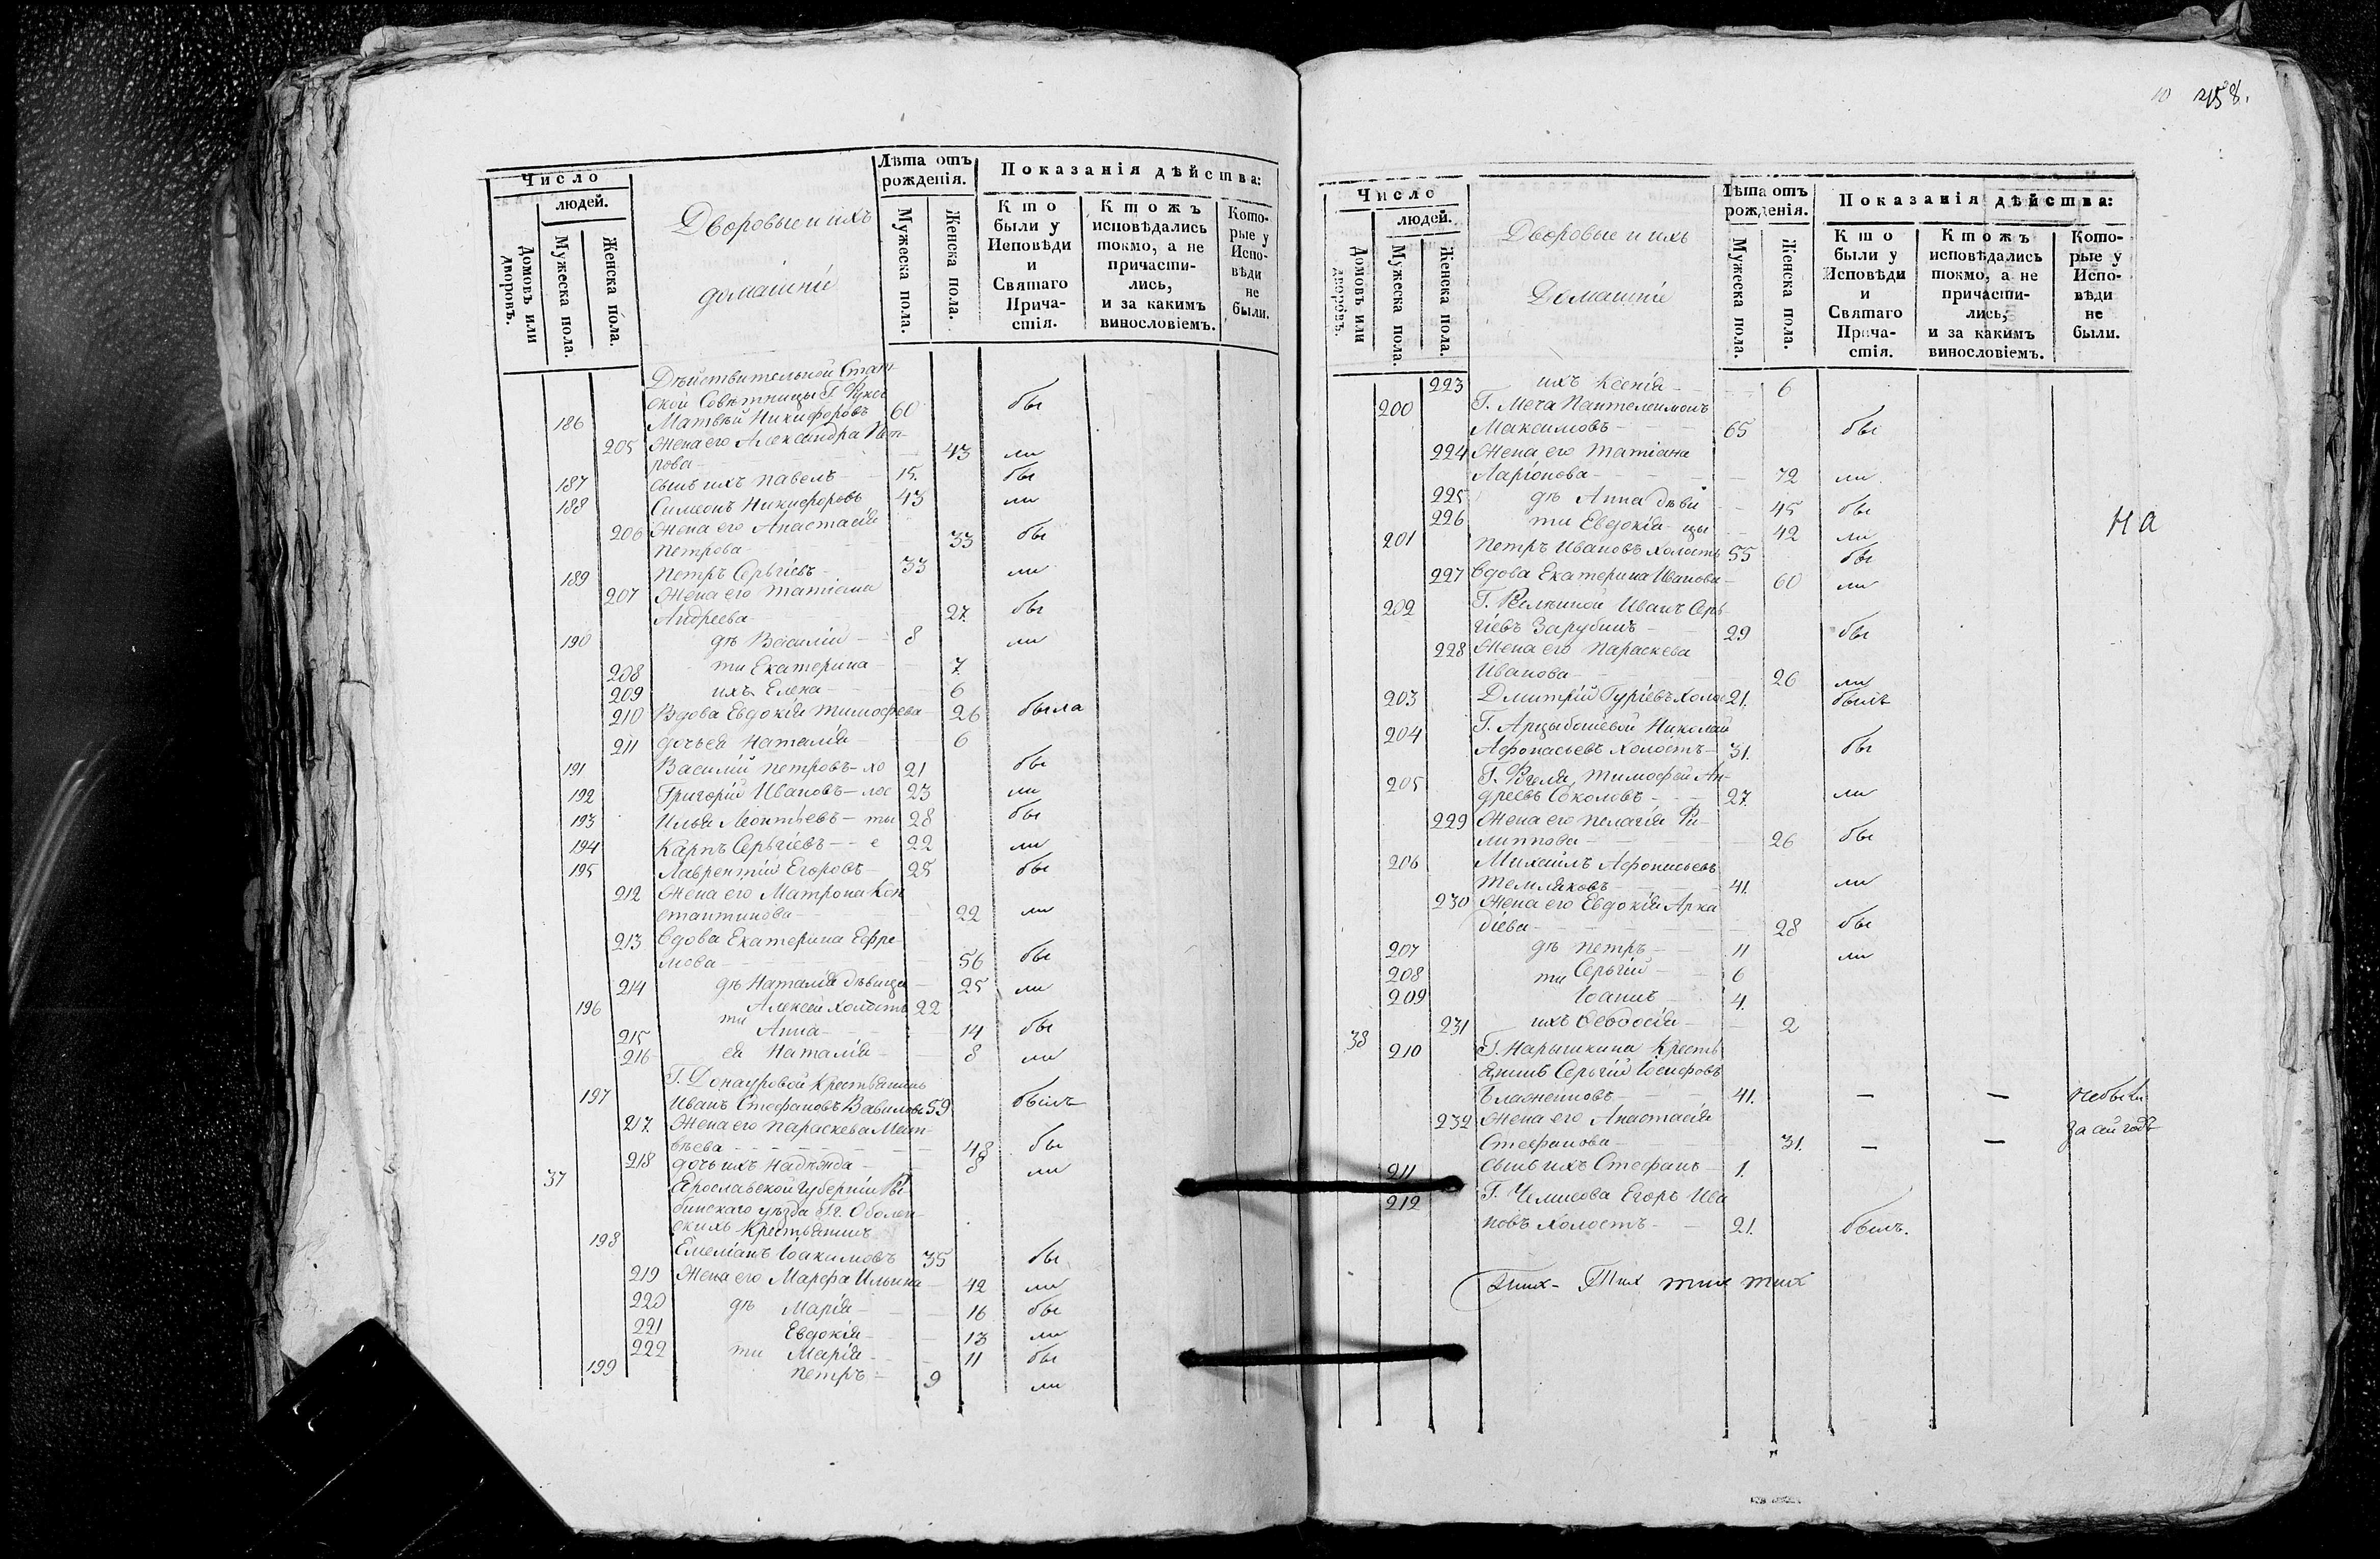 Число
людей.
Домовъ или дворовъ.
Мужеска пола.
Женска пола.
Дворовые и ихъ
домашніе
Лѣта отъ рожденія.
Мужеска пола.
Женска пола.
Показанія дѣйства:
Кто были у Исповѣди и Святаго Прича-стія.
Ктожъ исповѣдались токмо, а не причасти-лись, и за какимъ винословіемъ.
Кото-рые у Испо-вѣди не были.
Дѣйствительной Стат-
ской Совѣтницы Г.
186 Матвѣй Никифоровъ 60 бы
205 Жена его Александра Пет-
рова - 43 ли
187 сынъ ихъ Павелъ - 15. бы
188 Симеонъ Никифоровъ 43 ли
206 Жена его Анастасія
Петрова - 33 бы
189 Петръ Сергіевъ - 33 ли
207 Жена его Татіана
Андреева - 27. бы
190 дѣ Василій - 8 ли
208 ти Екатерина - 7.
209 ихъ Елена - 6
210 Вдова Евдокія Тимофеева - 26 была
211 дочь ея Наталія - 6
191 Василій Петровъ - хо 21 бы
192 Григорій Ивановъ - лос 23 ли
193 Илья Леонтьевъ - ты 28 бы
194 Карпъ Сергіевъ - - е 22 ли
195 Лаврентій Егоровъ - 25 бы
212 Жена его Матрона Кон
стантинова - 22 ли
213 Вдова Екатерина Ефре-
мова - 56 бы
214 дѣ Наталія дѣвица - 25 ли
196 Алексей холостъ 22
215 ти Анна - 14 бы
216 ея Наталія - 8 ли
Г. Донауровой Крестьянинъ
197 Иванъ Стефановъ Вавиловъ 59 былъ
217. Жена его Параскева Мат-
вѣева - 48 бы
218 дочь ихъ Надежда - 8 ли
37 Ярославской Губерніи Ры
бинскаго уѣзда Гг. Оболен-
скихъ Крестьянинъ
198 Емеліанъ Іоакимовъ 35 бы
219 Жена его Марфа Ильина - 42 ли
220 дѣ Марія - 16 бы
221 Евдокія - 13 ли
222 ти Марія - 11 бы
199 Петръ - 9 ли
10 258.
Число
людей.
Домовъ или дворовъ.
Мужеска пола.
Женска пола.
Дворовые и ихъ
Домашніе
Лѣта отъ рожденія.
Мужеска пола.
Женска пола.
Показанія дѣйства:
Кто были у Исповѣди и Святаго Прича-стія.
Ктожъ исповѣдались токмо, а не причасти-лись, и за какимъ винословіемъ.
Кото-рые у Испо-вѣди не были.
223 ихъ Ксенія - 6
200 Г. Меча Пантелеимонъ
Максимовъ - 65 бы
224 Жена его Татіана
Ларіонова - 72 ли
225 дѣ Анна дѣви - 45 бы
226 ти Евдокія - цы 42 ли
На
201 Петръ Ивановъ холостъ 55 бы
227 Вдова Екатерина Иванова - 60 ли
202 Г. Иванъ Серь-
гіевъ Зарубинъ - 29 бы
228 Жена его Параскева
Иванова - 26 ли
203 Дмитрій Гуріевъ холос 21. былъ
204 Г. Арцыбашевой Николай
Афонасьевъ холостъ - 31. бы
205 Г. Тимофей Ан-
дреевъ Соколовъ - 27. ли
229 Жена его Пелагія Фи-
липпова - 26 бы
206 Михаилъ Афонасьевъ
Темляковъ - 41. ли
230 Жена его Евдокія Арка
діева - 28 бы
207 дѣ Петръ - 11 ли
208 ти Сергій - 6
209 Іоаннъ - 4.
231 ихъ Феодосія - 2
38 210 Г. Нарышкина Кресть
янинъ Сергій Іосифовъ
41. — — небыли
232 Жена его Анастасія за сей годъ
Стефанова - 31. — —
211 сынъ ихъ Стефанъ - 1.
212 Г. Челисова Егоръ Ива
новъ холостъ - 21. былъ.